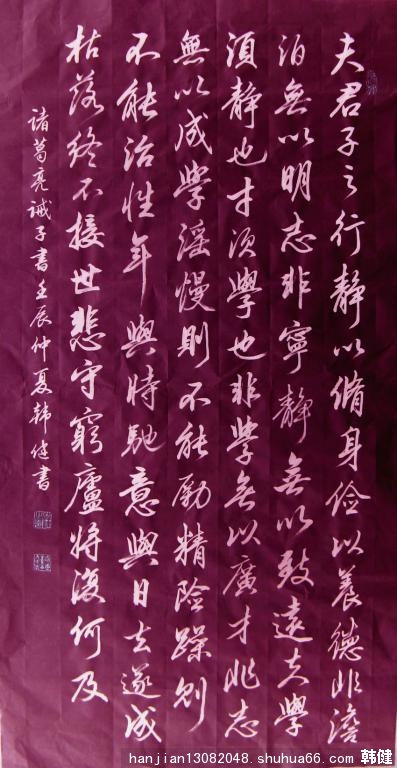 夫君子之行靜以脩身儉以養德非澹
泊無以明志非寧靜無以致遠夫學
須靜也才須學也非學無以廣才非志
無以成學滛慢則不能励精險躁則
不能治性年與時馳意與日去遂成
枯落終不接世悲守窮廬將復何及
諸葛亮誡子書壬辰仲夏韓健書
hanjian13082048.shuhua66.com 韩健